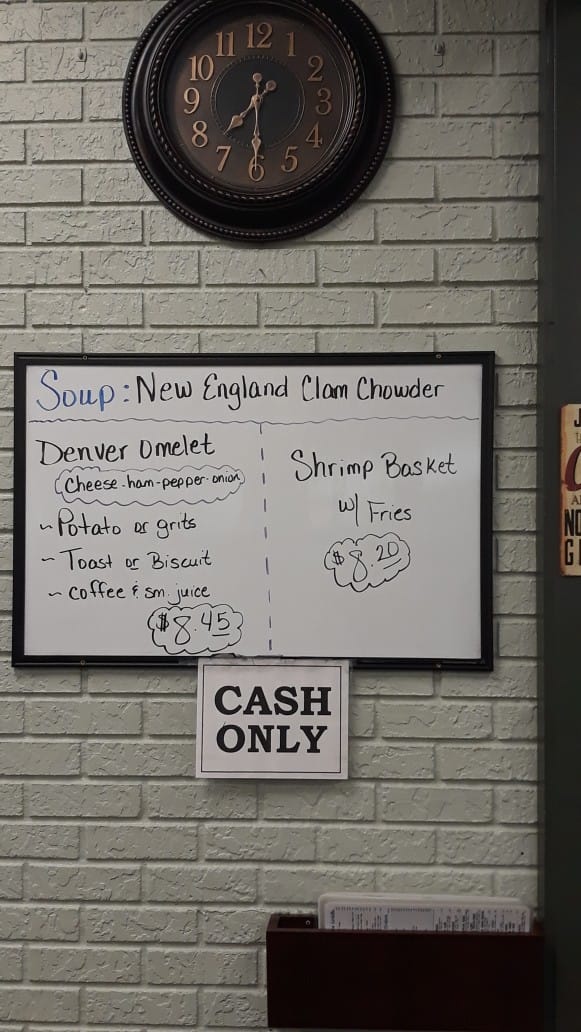 12
11 1
10 2
9 3
8 4
7 5
6
Soup: New England Clam Chowder
Denver Omelet
Cheese-ham-pepper-onion
~ Potato or grits
~ Toast or Biscuit
~ coffee & sm. juice
$8.45
Shrimp Basket
w/ Fries
$8.20
CASH
ONLY